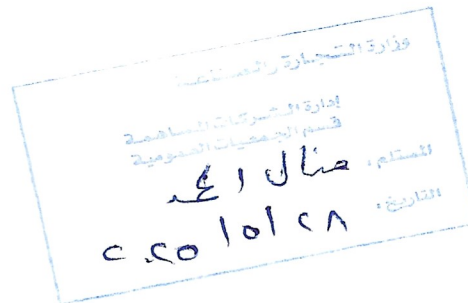 وزارة التجارة والصناعة
إدارة الشركات المساهمة
قسم الجمعيات العمومية
المستلم: منال
التاريخ: ٢٠٢٥/٥/٢٨